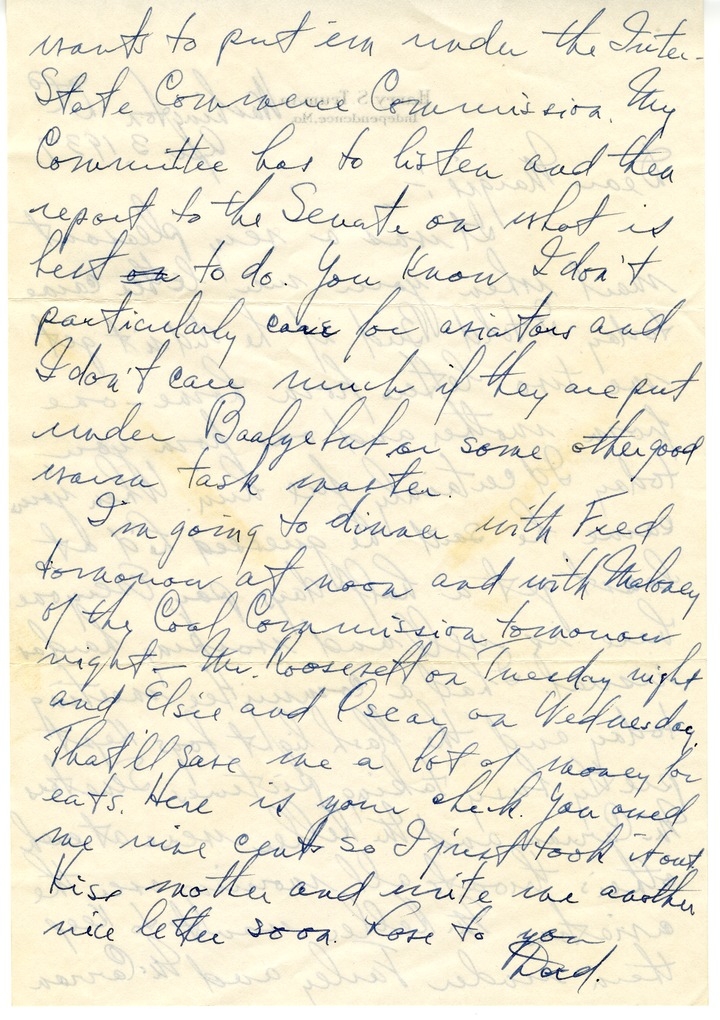 wants to put 'em under the Inter-
State Commerce Commission. My
Committee has to listen and then
report to the Senate on what is
best on to do. You know I don't
particularly care for aviators and
I don't care much if they are put
under or some other good
warm task master.
I'm going to dinner with Fred
tomorrow at noon and with Maloney
of the Coal Commission tomorrow
night — Mr. Roosevelt on Tuesday night
and Elsie and Oscar on Wednesday.
That'll save me a lot of money for
eats. Here is your check. You owed
me nine cents so I just took it out.
Kiss mother and write me another
nice letter soon. Love to you
Dad.